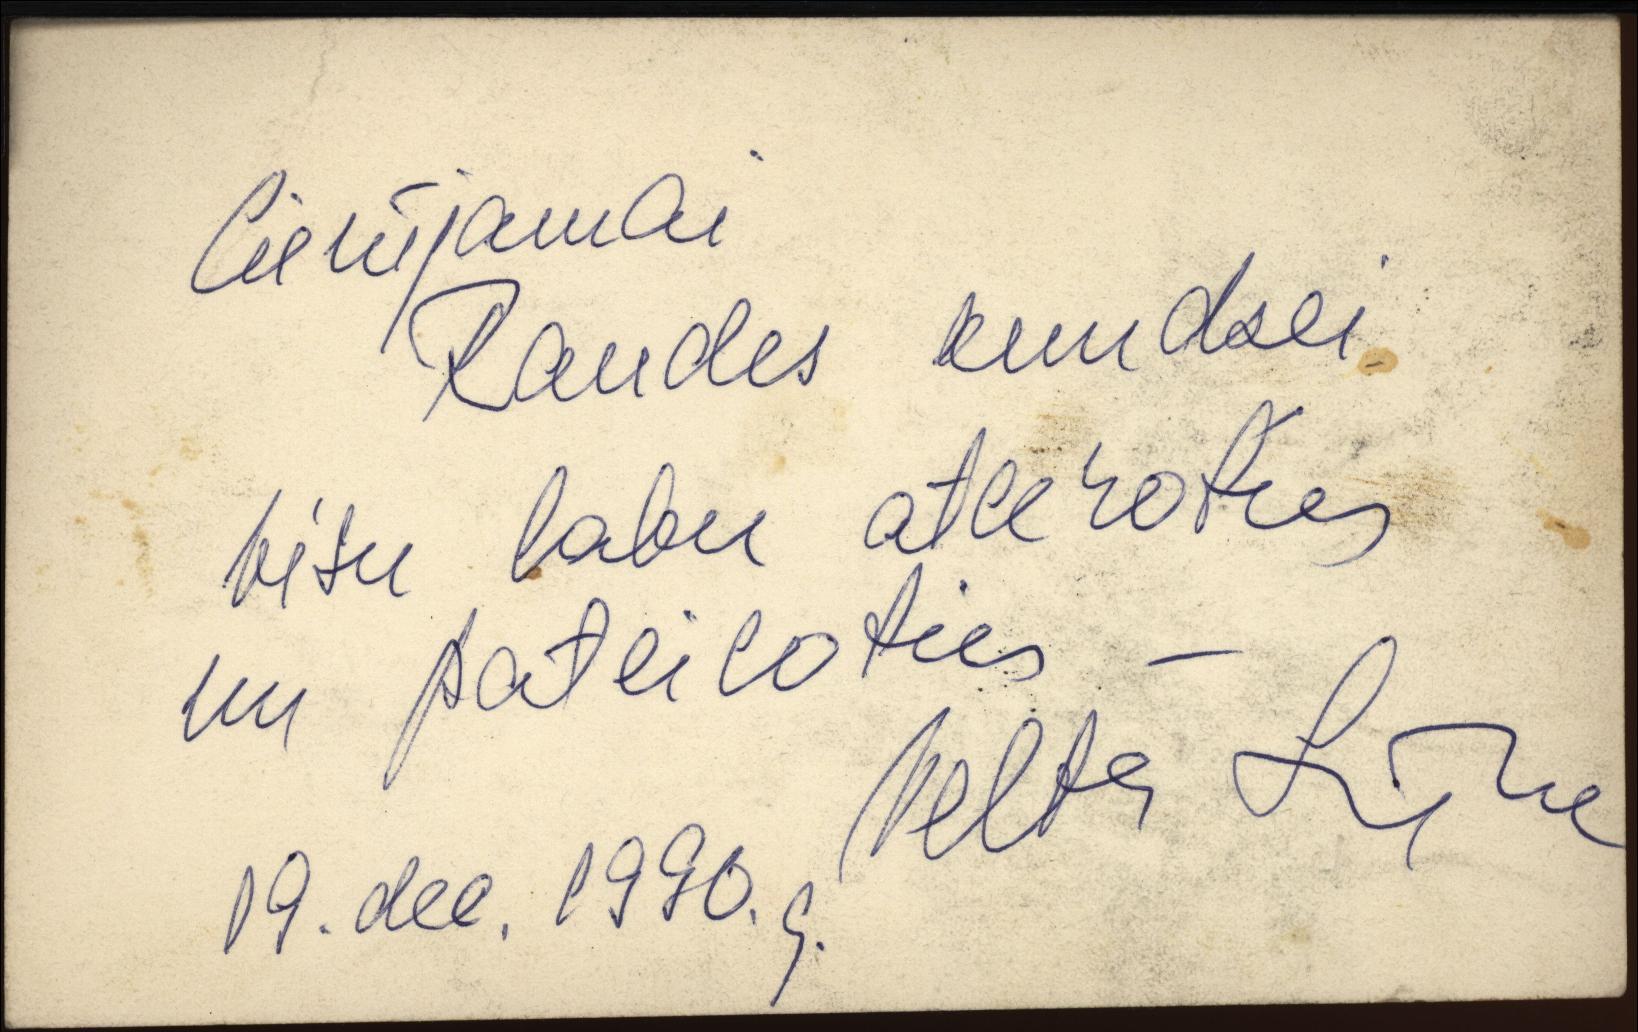 Cienījamai
Randes kundzei
visu labu atceroties
un pateicoties –
Velta Līne
19. dec. 1990. g.